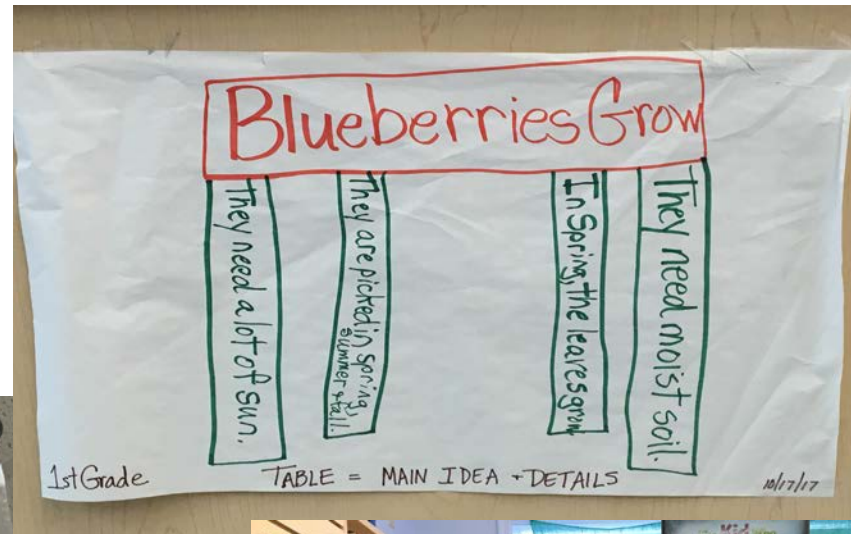 Blueberries Grow
They need a lot of sun.
They are picked in spring,
summer + fall.
In Spring, the leaves grow
They need moist soil.
1st Grade
TABLE = MAIN IDEA + DETAILS
10/17/17
Kid